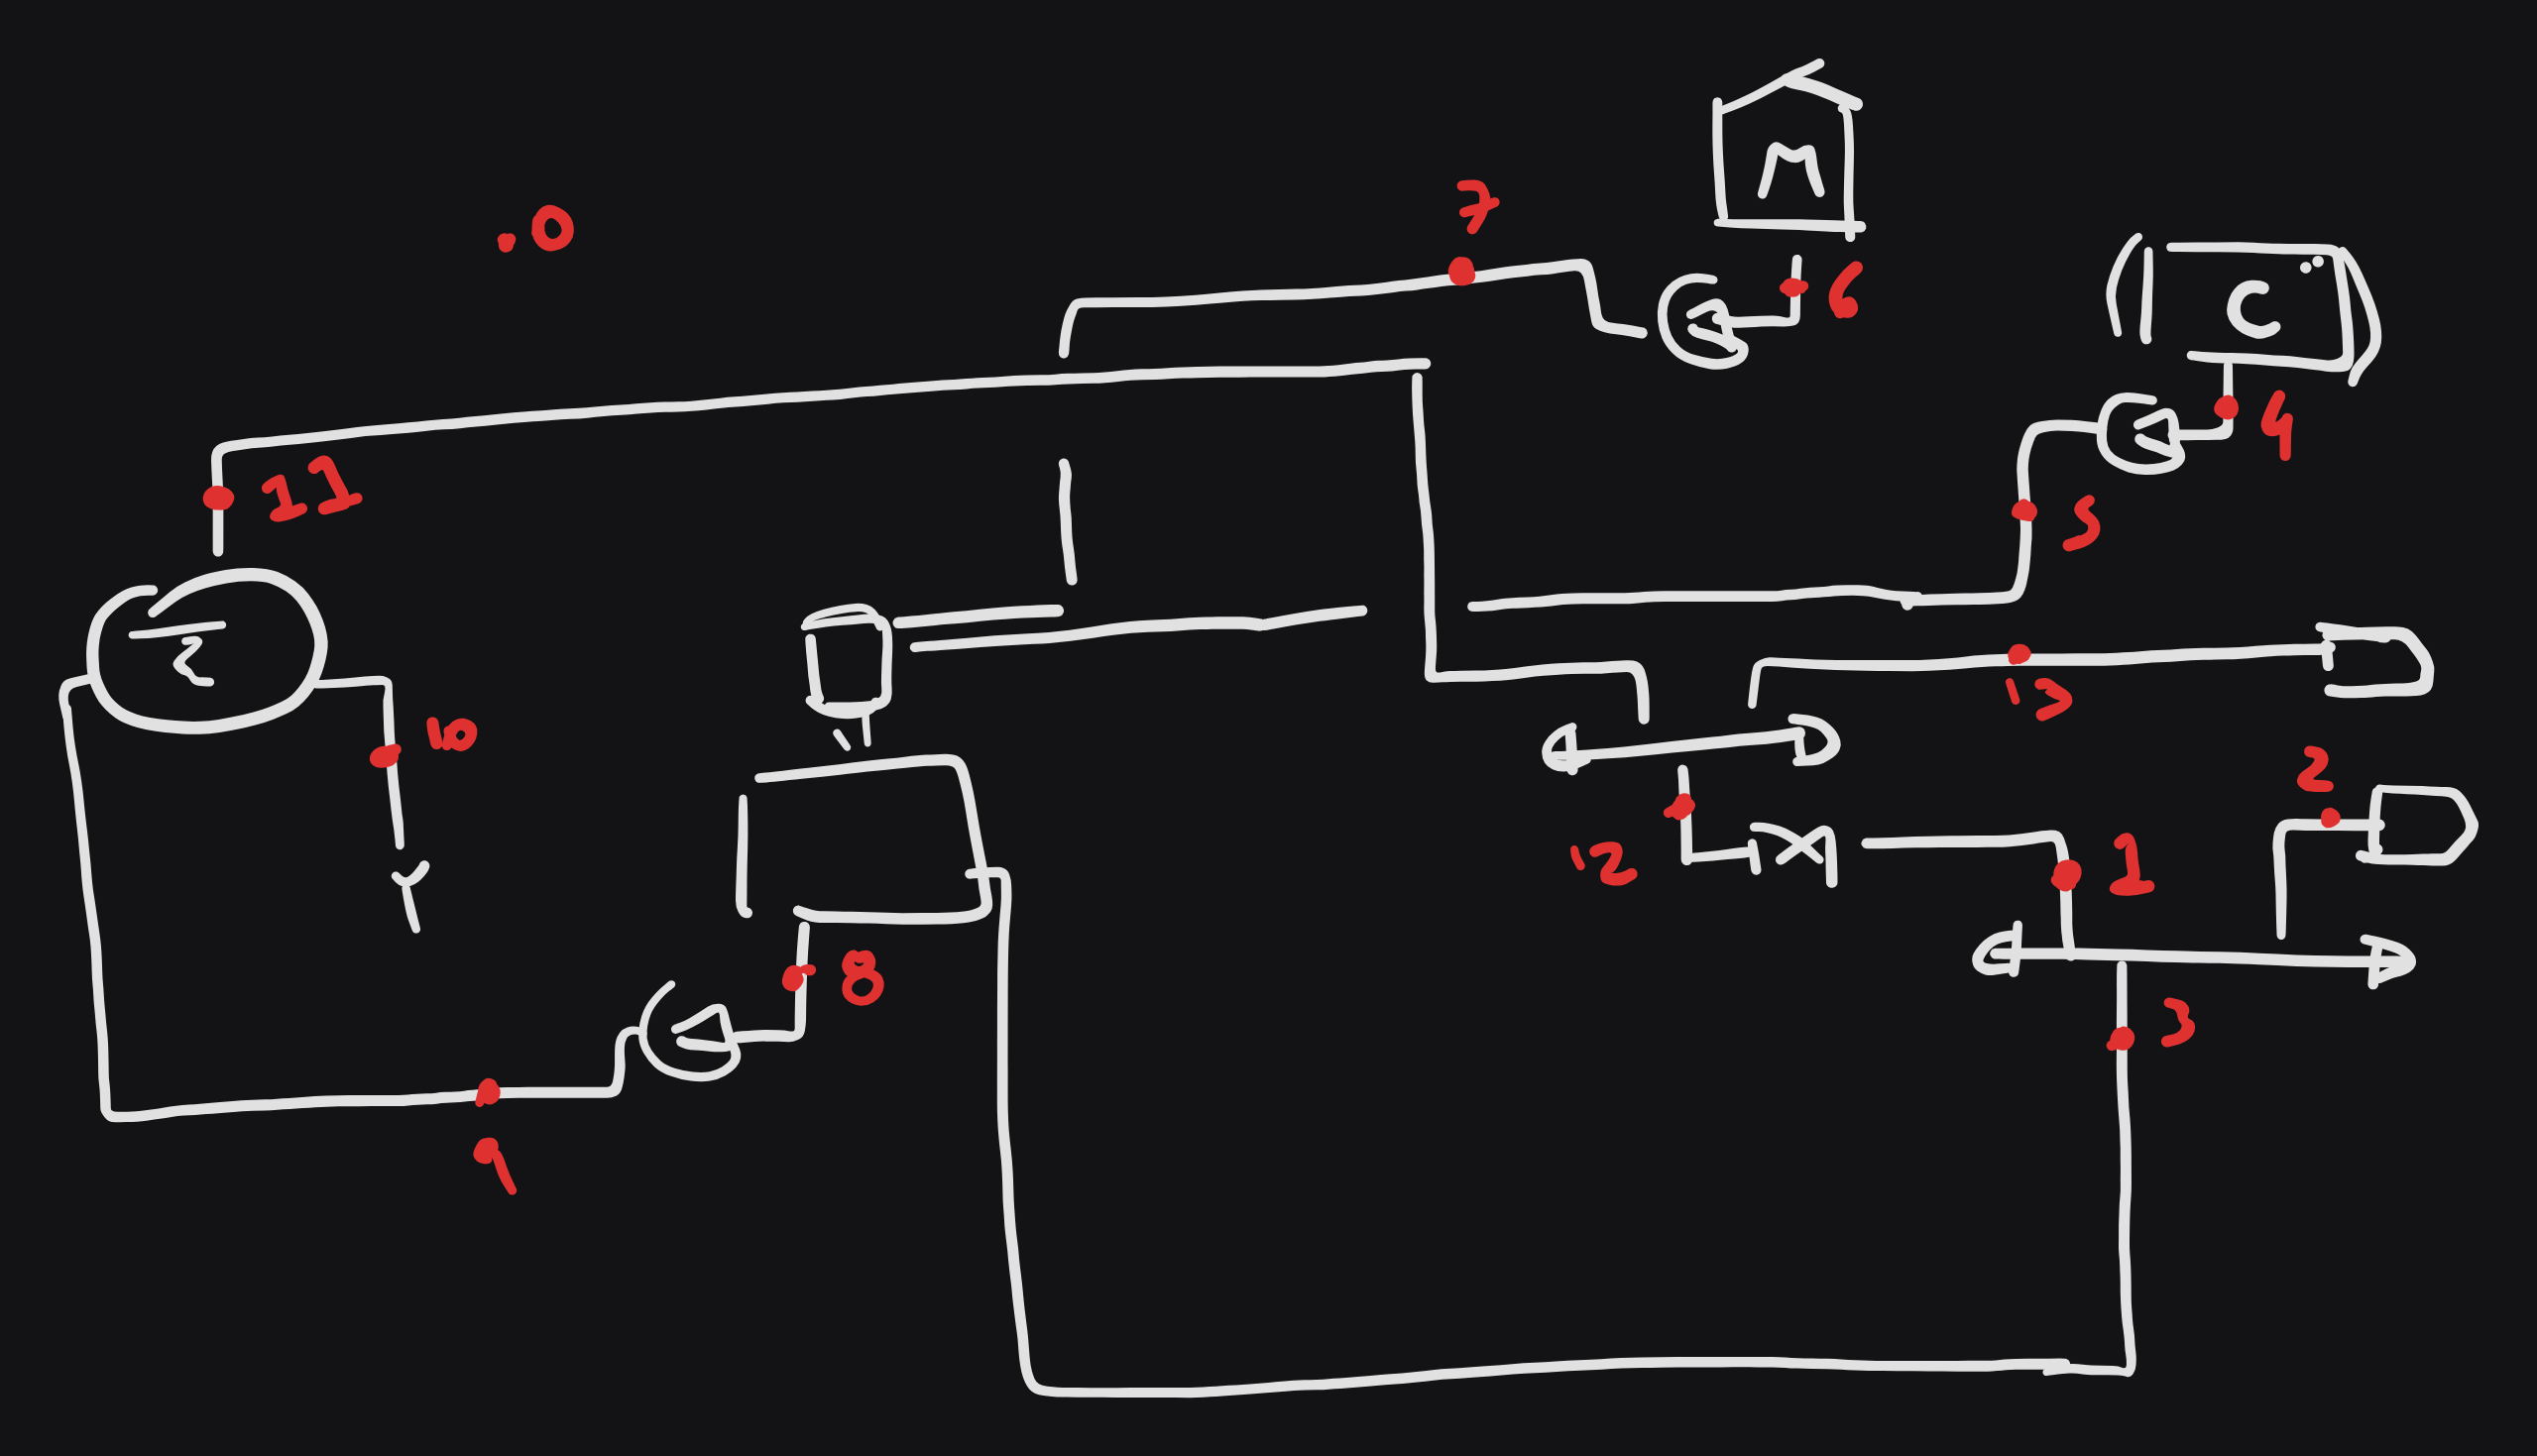 .0
7
M
6
C
4
11
5
13
10
2
12
1
8
3
9